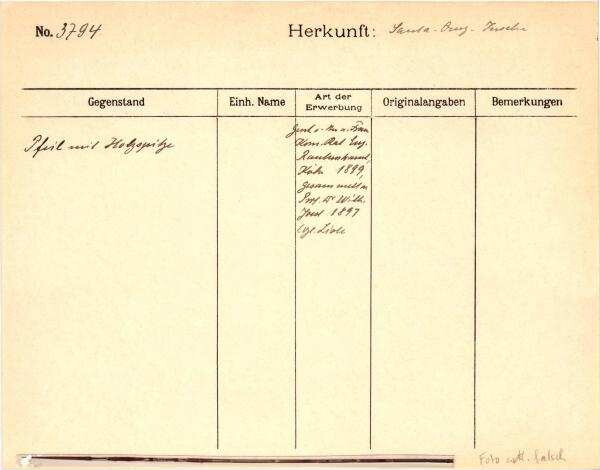 No. 3794
Herkunft: Santa-Cruz-Inseln
Gegenstand
Einh. Name
Art der
Erwerbung
Originalangaben
Bemerkungen
Pfeil mit Holzspitze
Gesch. v. Hrn u. Frau
Kom. Rat Eug.
Rautenstrauch,
Köln 1899,
gesammelt v.
Prof. Dr. Wilh.
Joest 1897
Foto evtl. falsch